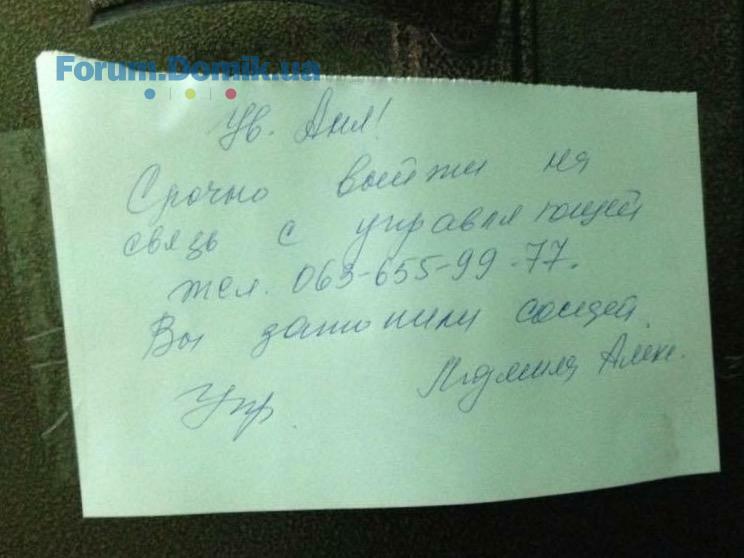 Forum.Domik.ua
Ув. Аня!
Срочно выйти на
связь с управляющей
тел. 063-655-99-77.
Вы затопили соседей.
Упр. Людмила Алек.